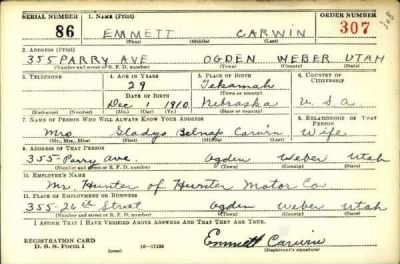 SERIAL NUMBER 1. NAME (Print) ORDER NUMBER
86 EMMETT CARWIN 307
(First) (Middle) (Last)
2. ADDRESS (Print)
355 PARRY AVE OGDEN WEBER UTAH
(Number and street or R. F. D. number) (Town) (County) (State)
3. TELEPHONE 4. AGE IN YEARS 5. PLACE OF BIRTH 6. COUNTRY OF CITIZENSHIP
29 Tekamah
DATE OF BIRTH (Town or county)
Dec 1 1910 Nebraska U.S.A
(Exchange) (Number) (Mo.) (Day) (Yr.) (State or country)
7. NAME OF PERSON WHO WILL ALWAYS KNOW YOUR ADDRESS 8. RELATIONSHIP OF THAT PERSON
Mrs. Gladys Belnap Carwin Wife
(Mr., Mrs., Miss) (First) (Middle) (Last)
9. ADDRESS OF THAT PERSON
355 Parry ave. Ogden Weber Utah
(Number and street or R. F. D. number) (Town) (County) (State)
10. EMPLOYER'S NAME
Mr. Hunter of Hunter Motor Co
11. PLACE OF EMPLOYMENT OR BUSINESS
355-26th Street Ogden Weber Utah
(Number and street or R. F. D. number) (Town) (County) (State)
I AFFIRM THAT I HAVE VERIFIED ABOVE ANSWERS AND THAT THEY ARE TRUE.
REGISTRATION CARD
D. S. S. Form 1 (over) 16-17105 Emmett Carwin
(Registrant's signature)